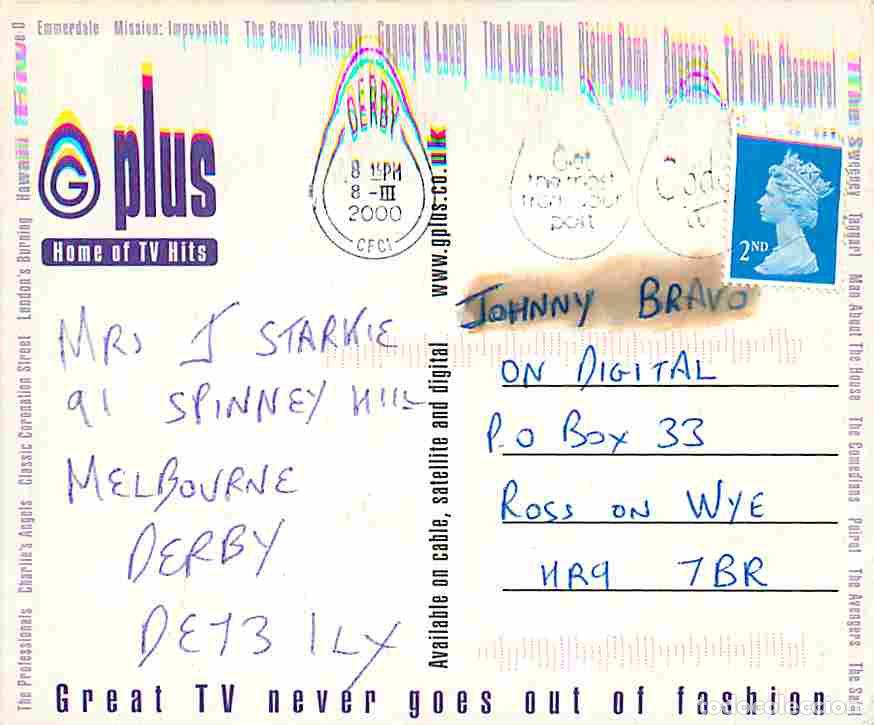 Emmerdale Mission: Impossible The Benny Hill Show Cagney & Lacey The Love Boat Rising Damp Duncan The High Chaparral
G plus
Home of TV Hits
DERBY
8 15PM
8 - III
2000
CFC1
Get
the most
from your
post
2ND
JOHNNY BRAVO
ON DIGITAL
P.O BOX 33
ROSS ON WYE
HR9 7BR
MRS J STARKIE
91 SPINNEY HILL
MELBOURNE
DERBY
DE73 1LY
Available on cable, satellite and digital www.gplus.co.uk
The Professionals Charlie's Angels Classic Coronation Street London's Burning Hawaii
Sweeney Taggart Man About The House The Comedians Poirot The Avengers
Great TV never goes out of fashion
todocoleccion